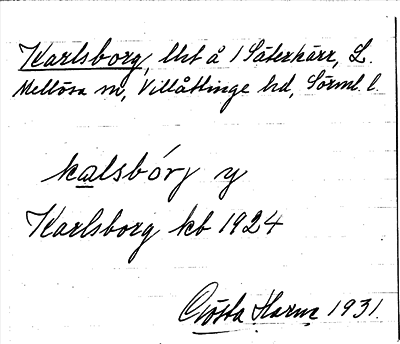 Karlsborg, lht å 1 Säterkärr, L.
Mellösa sn, Villåttinge hd, Sörml. l.
kalsbórj y
Karlsborg kb 1924
Gösta Harne 1931.